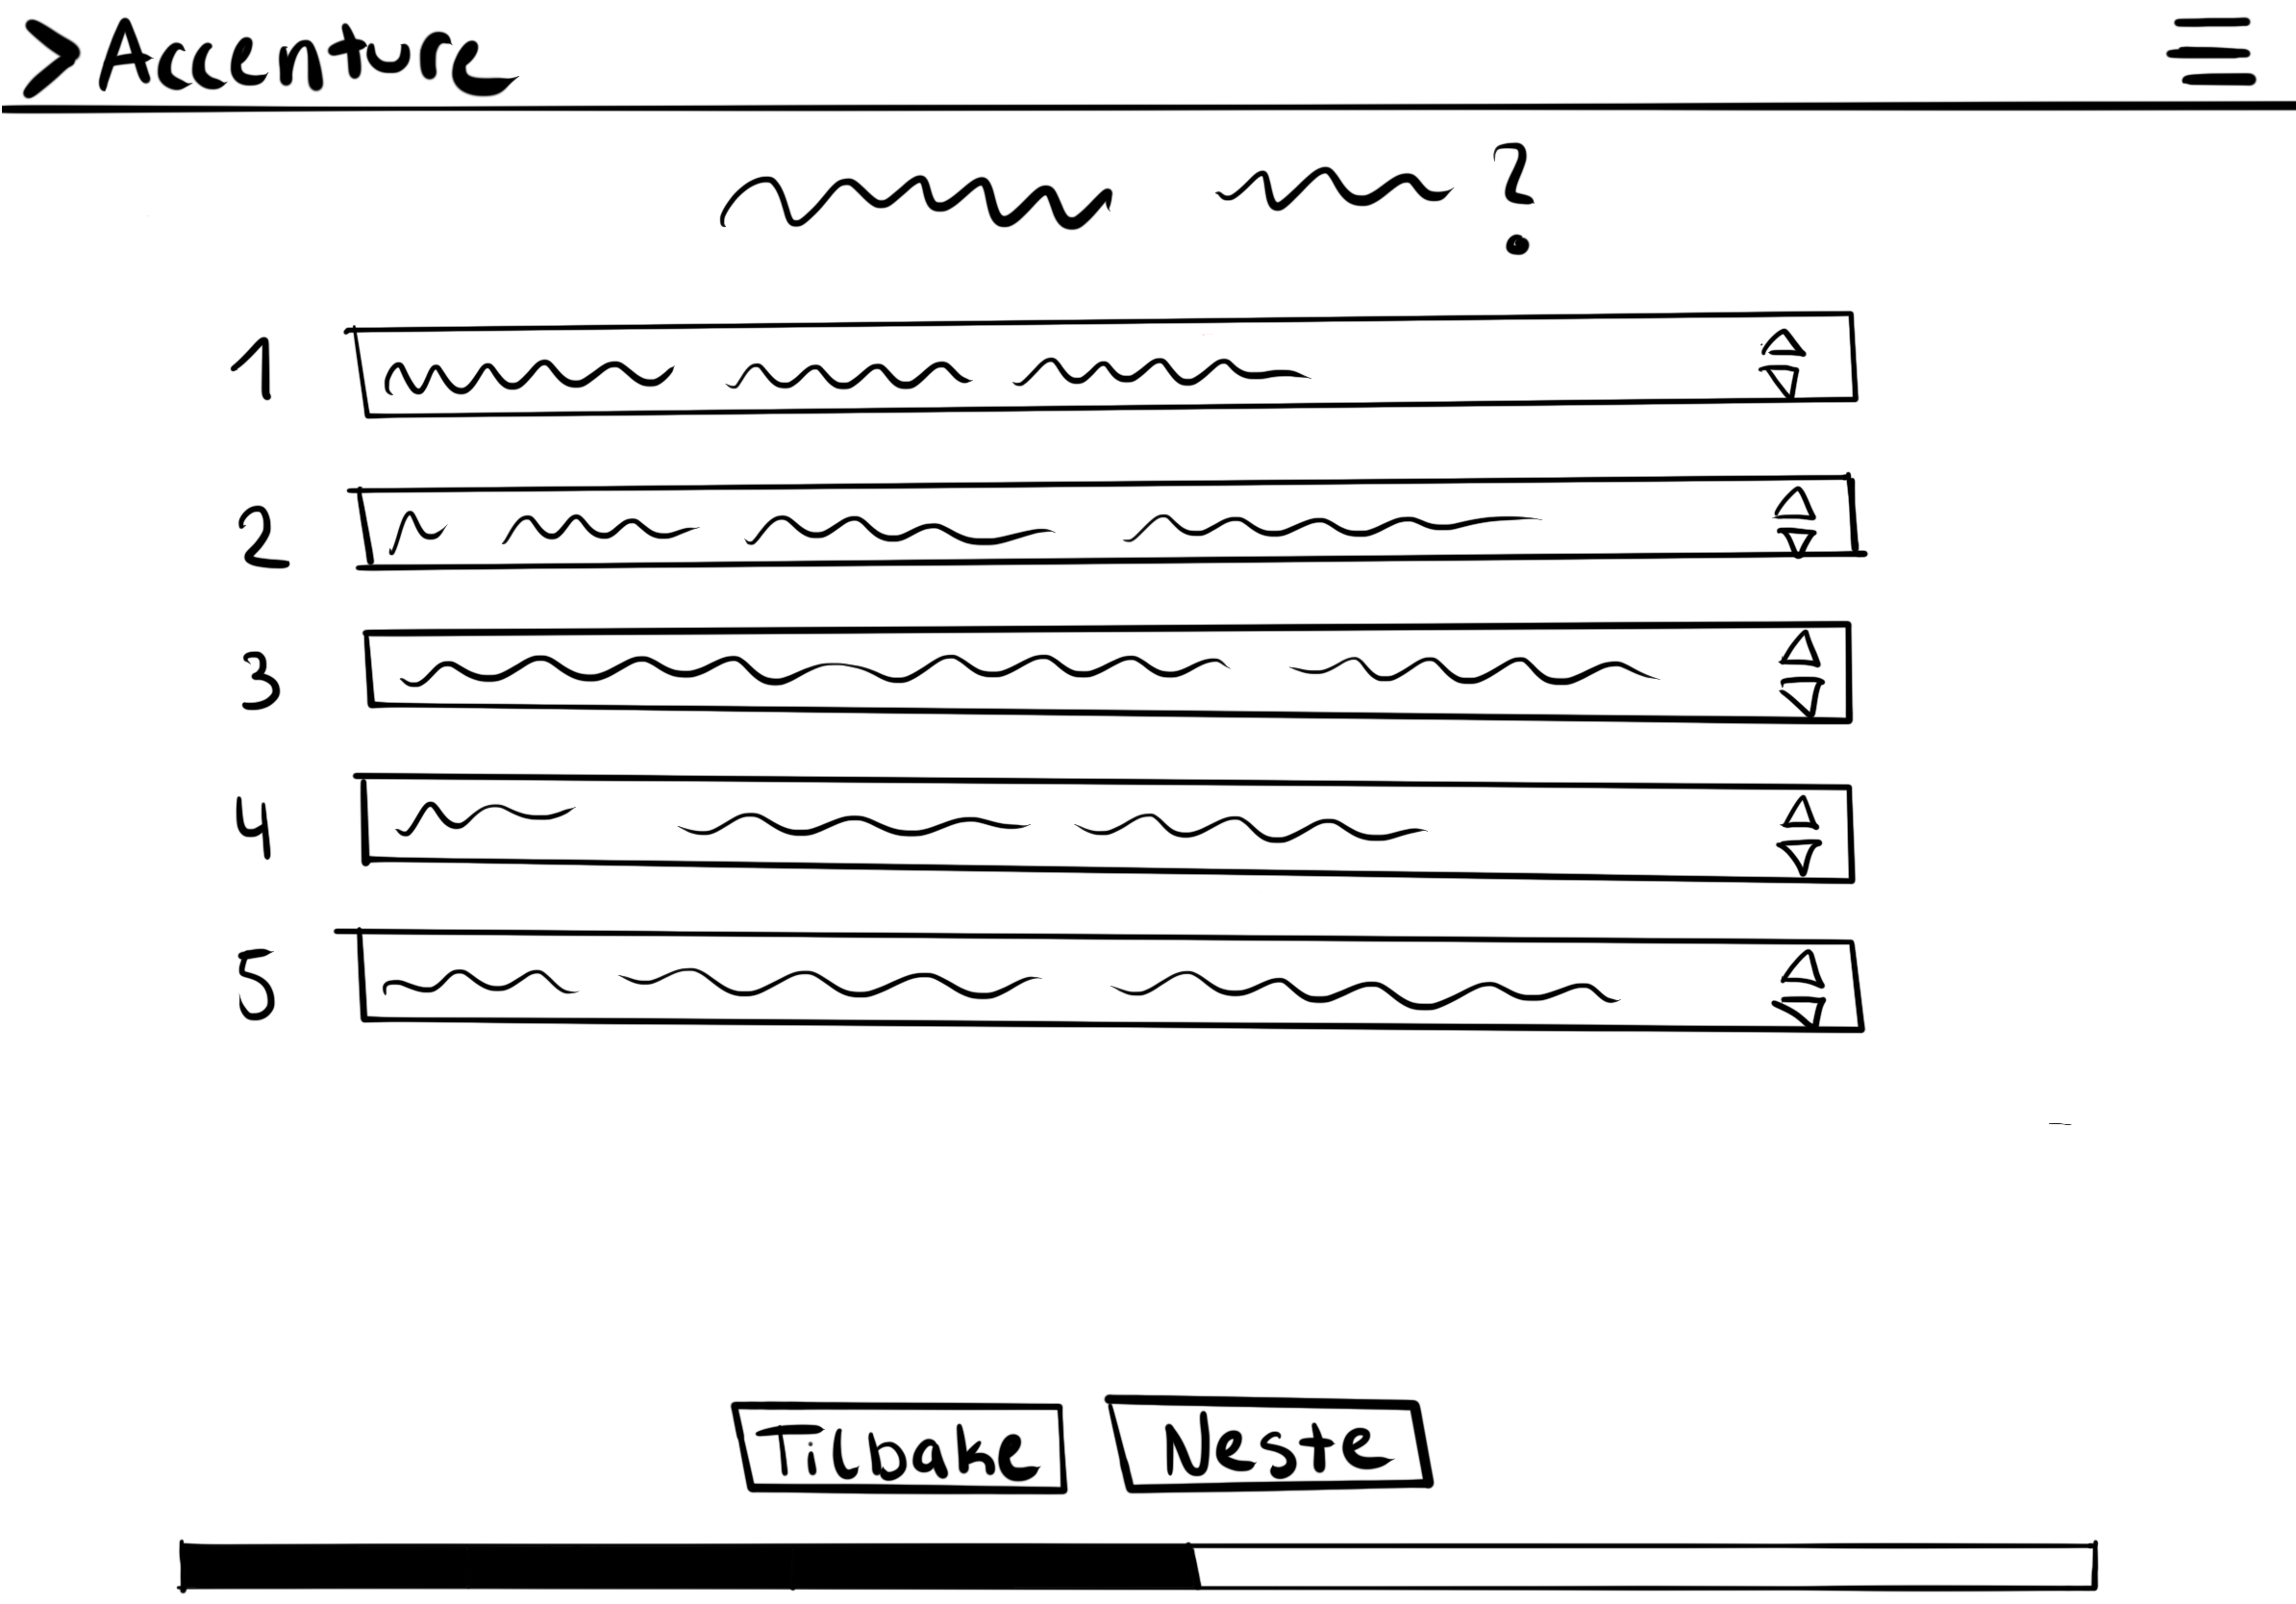 >Accenture
?
1
2
3
4
5
Tilbake Neste